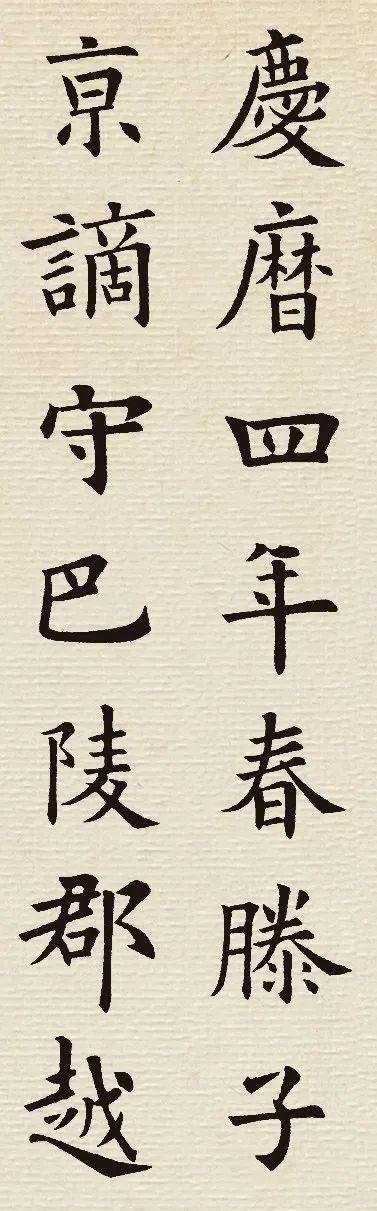 慶曆四年春滕子
京謫守巴陵郡越